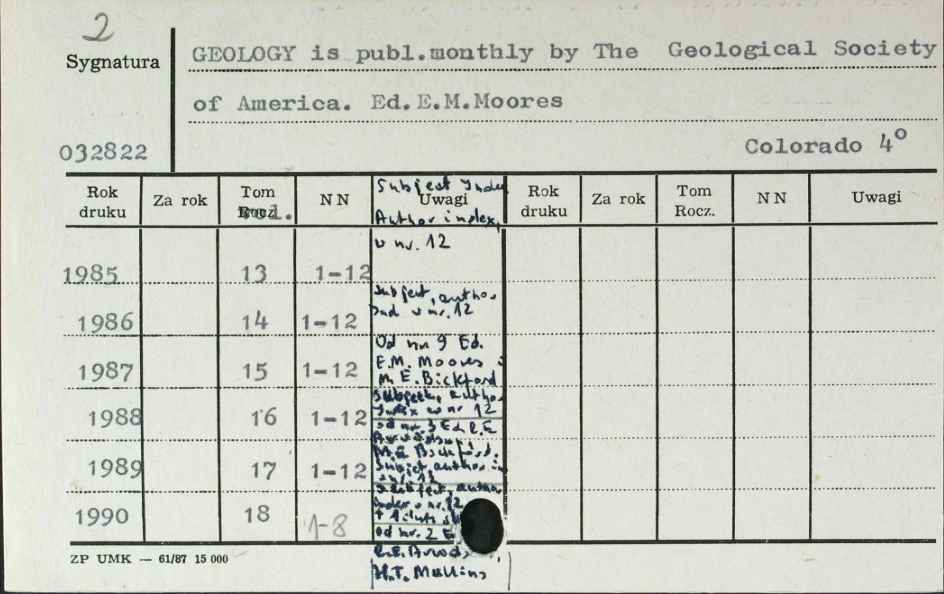 2
Sygnatura
GEOLOGY is publ.monthly by The Geological Society
of America. Ed.E.M.Moores
032822
Colorado 4°
Rok druku Za rok Tom Rocz. NN Uwagi Rok druku Za rok Tom Rocz. NN Uwagi
Subject Index
Author index,
w nr. 12
1985 13 1-12
Subject, author
Ind w nr. 12
1986 14 1-12
Od nr 9 Ed.
E.M. Moores i
M.E. Bickford
1987 15 1-12
Subject, author
Index w nr 12
1988 16 1-12
od nr. 3 Ed R.E
M.E. Bickford.
Subject, author
w nr. 12
1989 17 1-12
Subject, author
index w nr. 12
1990 18 1-8
od nr. 2 E
R.E. Arvids
H.T. Mullins
ZP UMK — 61/87 15 000